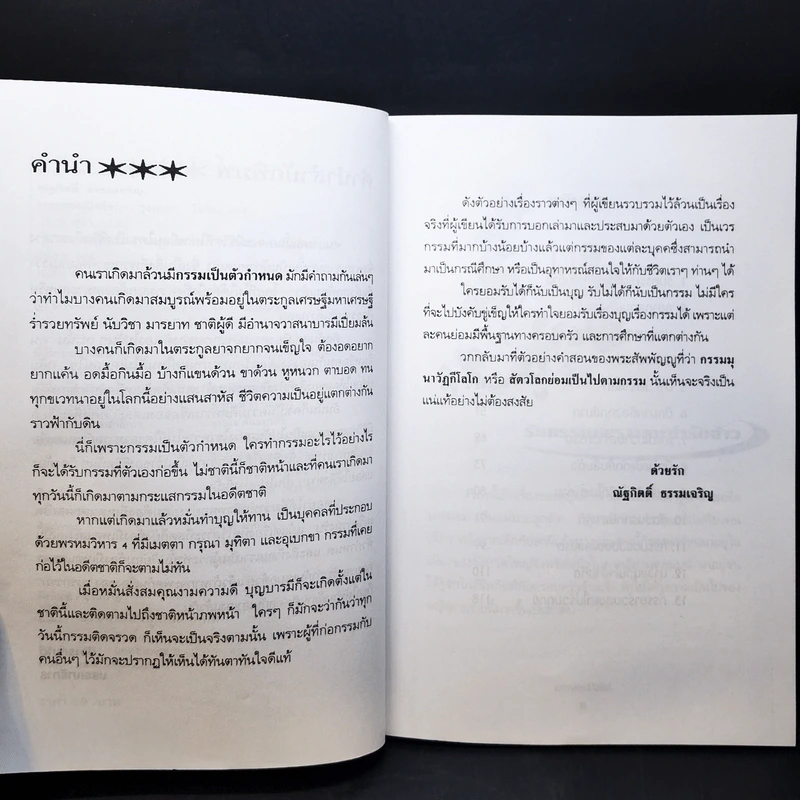 คำนำ ✶✶✶
คนเราเกิดมาล้วนมีกรรมเป็นตัวกำหนด มักมีคำถามกันเล่นๆ
ว่าทำไมบางคนเกิดมาสมบูรณ์พร้อมอยู่ในตระกูลเศรษฐีมหาเศรษฐี
ร่ำรวยทรัพย์ นับวิชา มารยาท ชาติผู้ดี มีอำนาจวาสนาบารมีเปี่ยมล้น
บางคนก็เกิดมาในตระกูลยาจกยากจนเข็ญใจ ต้องอดอยาก
ยากแค้น อดมื้อกินมื้อ บ้างก็แขนด้วน ขาด้วน หูหนวก ตาบอด ทน
ทุกขเวทนาอยู่ในโลกนี้อย่างแสนสาหัส ชีวิตความเป็นอยู่แตกต่างกัน
ราวฟ้ากับดิน
นี่ก็เพราะกรรมเป็นตัวกำหนด ใครทำกรรมอะไรไว้อย่างไร
ก็จะได้รับกรรมที่ตัวเองก่อขึ้น ไม่ชาตินี้ก็ชาติหน้าและที่คนเราเกิดมา
ทุกวันนี้ก็เกิดมาตามกระแสกรรมในอดีตชาติ
หากแต่เกิดมาแล้วหมั่นทำบุญให้ทาน เป็นบุคคลที่ประกอบ
ด้วยพรหมวิหาร 4 ที่มีเมตตา กรุณา มุทิตา และอุเบกขา กรรมที่เคย
ก่อไว้ในอดีตชาติก็จะตามไม่ทัน
เมื่อหมั่นสั่งสมคุณงามความดี บุญบารมีก็จะเกิดตั้งแต่ใน
ชาตินี้และติดตามไปถึงชาติหน้าภพหน้า ใครๆ ก็มักจะว่ากันว่าทุก
วันนี้กรรมติดจรวด ก็เห็นจะเป็นจริงตามนั้น เพราะผู้ที่ก่อกรรมกับ
คนอื่นๆ ไว้มักจะปรากฏให้เห็นได้ทันตาทันใจดีแท้
ดังตัวอย่างเรื่องราวต่างๆ ที่ผู้เขียนรวบรวมไว้ล้วนเป็นเรื่อง
จริงที่ผู้เขียนได้รับการบอกเล่ามาและประสบมาด้วยตัวเอง เป็นเวร
กรรมที่มากบ้างน้อยบ้างแล้วแต่กรรมของแต่ละบุคคลซึ่งสามารถนำ
มาเป็นกรณีศึกษา หรือเป็นอุทาหรณ์สอนใจให้กับชีวิตเราๆ ท่านๆ ได้
ใครยอมรับได้ก็นับเป็นบุญ รับไม่ได้ก็นับเป็นกรรม ไม่มีใคร
ที่จะไปบังคับขู่เข็ญให้ใครทำใจยอมรับเรื่องบุญเรื่องกรรมได้ เพราะแต่
ละคนย่อมมีพื้นฐานทางครอบครัว และการศึกษาที่แตกต่างกัน
วกกลับมาที่ตัวอย่างคำสอนของพระสัพพัญญูที่ว่า กรรมมุ
นาวัฏกีโลโก หรือ สัตว์โลกย่อมเป็นไปตามกรรม นั้นเห็นจะจริงเป็น
แน่แท้อย่างไม่ต้องสงสัย
ด้วยรัก
ณัฐกิตติ์ ธรรมเจริญ